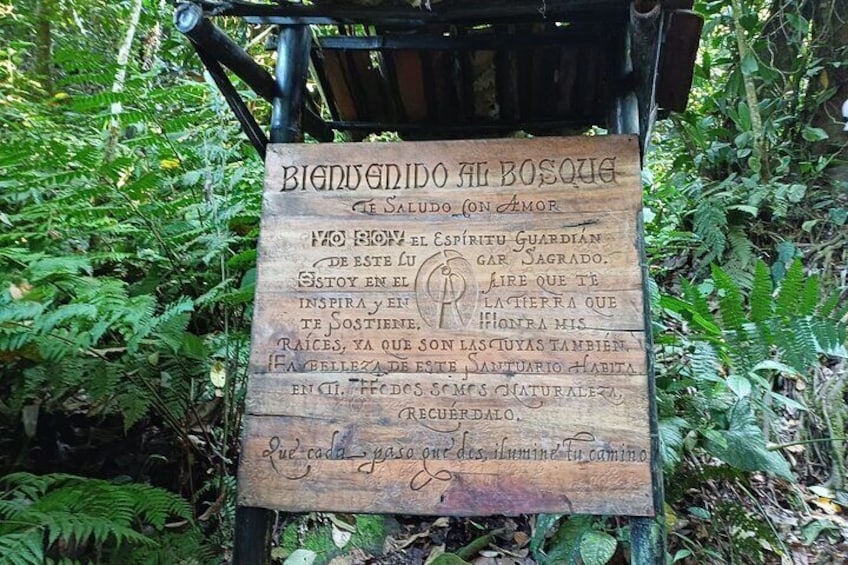 BIENVENIDO AL BOSQUE
TE SALUDO CON AMOR
YO SOY EL ESPÍRITU GUARDIÁN
DE ESTE LUGAR SAGRADO.
ESTOY EN EL AIRE QUE TE
INSPIRA Y EN LA TIERRA QUE
TE SOSTIENE. HONRA MIS
RAÍCES, YA QUE SON LAS TUYAS TAMBIÉN.
LA BELLEZA DE ESTE SANTUARIO HABITA
EN TI. TODOS SOMOS NATURALEZA,
RECUÉRDALO.
Que cada paso que des, ilumine tu camino